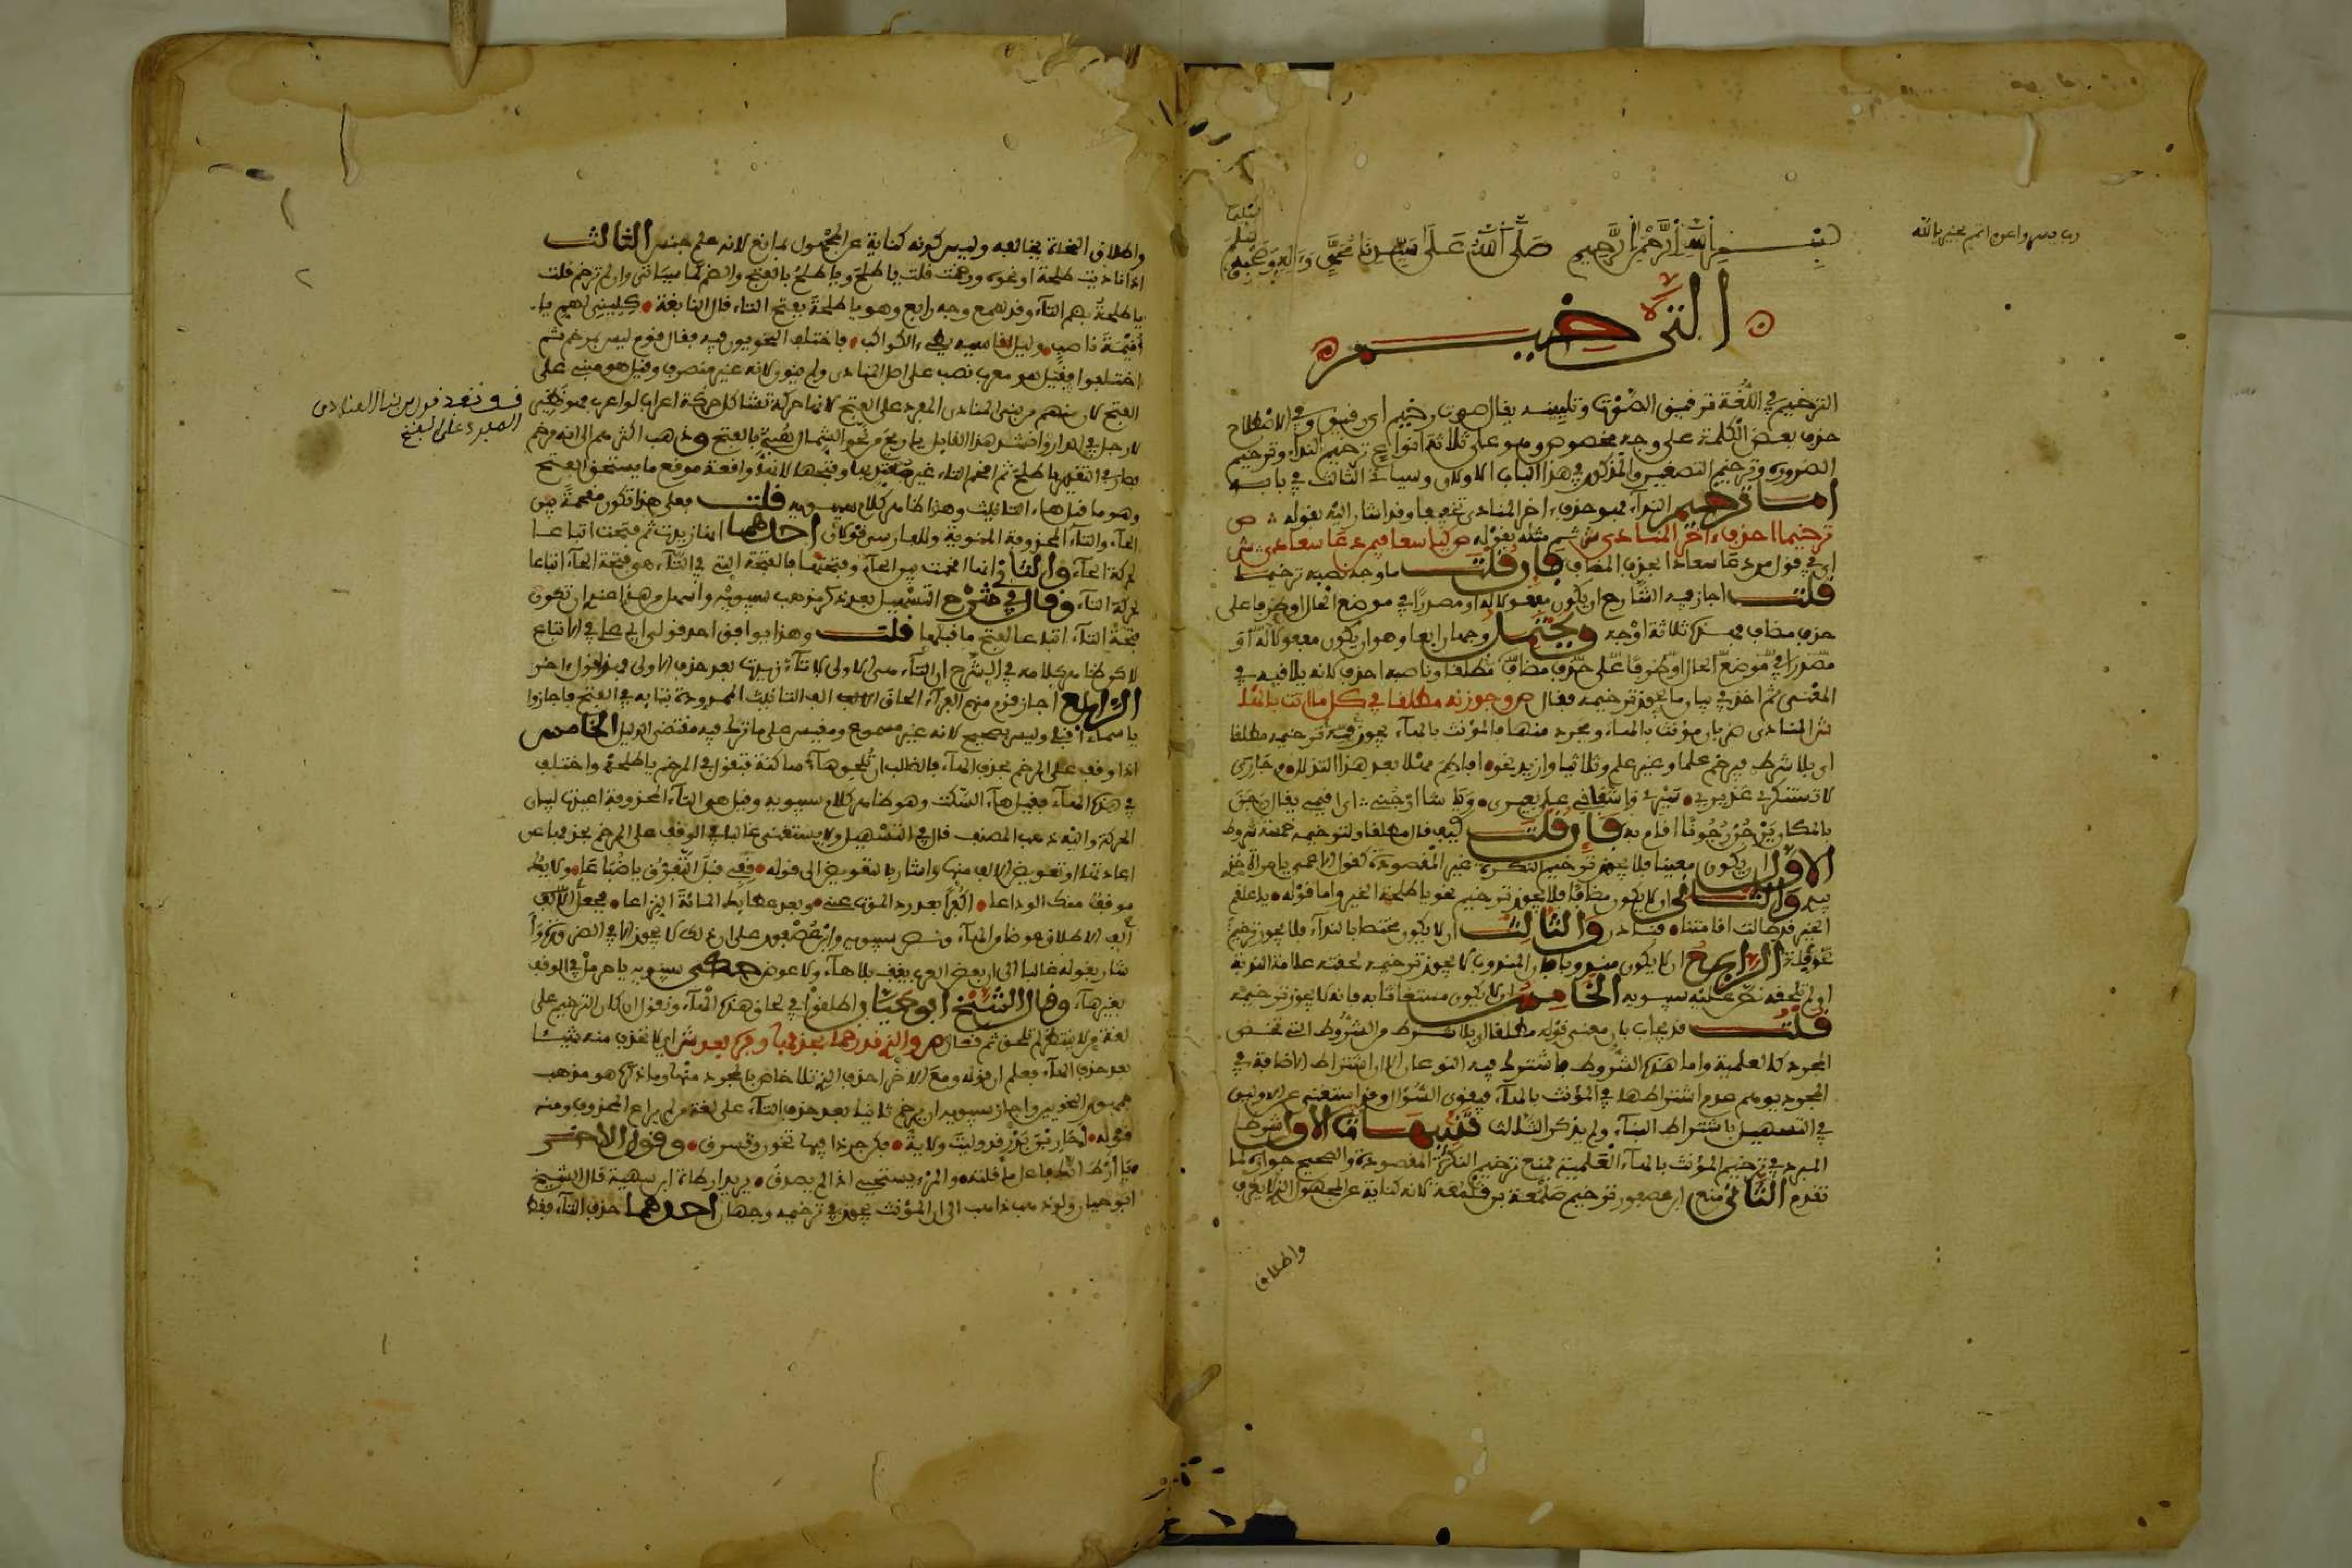 بسم الله الرحمن الرحيم صلى الله على سيدنا محمد وءاله وصحبه
الترخيم
الترخيم في اللغة ترقيق الصوت وتليينه يقال صوت رخيم اي رقيق وفي الاصطلاح
حذف بعض الكلمة على وجه مخصوص وهو على ثلاثة انواع ترخيم النداء وترخيم
الضرورة وترخيم التصغير والمذكور في هذا الباب الاولان وسياتي الثالث في بابه
اما ترخيم النداء فهو حذف اخر المنادى تخفيفا وقد اشار اليه بقوله ص
ترخيما احذف اخر المنادى ش ثم مثله بقوله ص كيا سعا فيمن دعا سعادا ش
اي في قول من دعا سعادا بحذف المضاف فان قلت ما وجه نصبه ترخيما
قلت اجاز فيه الشارح ان يكون مفعولا له او مصدرا في موضع الحال او ظرفا على
حذف مضاف فهذه ثلاثة اوجه ويحتمل وجها رابعا وهو ان يكون مفعولا له او
مصدرا في موضع الحال او ظرفا على حذف مضاف مطلقا وناصبه احذف لانه يلاقيه في
المعنى ثم اخذ في بيان ما يجوز ترخيمه فقال ص وجوزنه مطلقا في كل ما انث بالها
ش المنادى ضربان مؤنث بالهاء ومجرد منها فالمؤنث بالهاء يجوز فيه ترخيمه مطلقا
اي بلا شرط فيرخم علما وغير علم وثلاثيا وازيد نحو افاطم مهلا بعد هذا التدلل و جاري
لا تستنكري عذيري سيري واشفاقي على بعيري ويا شا ارجني اي اقيمي يقال
بالمكان يرجن رجونا اقام به فان قلت كيف قال مطلقا ولترخيمه خمسة شروط
الاول ان يكون معينا فلا يجوز ترخيم النكرة غير المقصودة كقول الاعمى يا امراة خذي
بيدي والثاني ان لا يكون مضافا فلا يجوز ترخيم نحو يا طلحة الخير واما قوله يا علقم
الخير قد طالت اقامتنا فنادر والثالث ان لا يكون مختصا بالنداء فلا يجوز ترخيم
نحو فلة الرابع ان لا يكون مندوبا فان المندوب لا يجوز ترخيمه لحقته علامة الندبة
او لم تلحقه نص عليه سيبويه الخامس ان لا يكون مستغاثا به فانه لا يجوز ترخيمه
قلت قد يجاب بان معنى قوله مطلقا اي بلا شرط من الشروط التي تخص
المجرد كالعلمية واما هذه الشروط فاشترط فيه النوعان الا ان اشتراط الاضافة في
المجرد يوهم عدم اشتراطها في المؤنث بالهاء فيقوى السؤال وقد استغنى عن الاولين
في التسهيل باشتراط البناء ولم يذكر الثالث تنبيهات الاول شرط
المبرد في ترخيم المؤنث بالهاء العلمية فمنع ترخيم النكرة المقصودة والصحيح جوازه لما
تقدم الثاني منع ابن عصفور ترخيم صلمعة بن قلمعة لانه كناية عن المجهول الذي لا يعرف
واطلاق
واطلاق النحاة يخالفه وليس كونه كناية عن المجهول بمانع لانه علم جنس الثالث
اذا ناديت طلحة او نحوه ورخمت قلت يا طلح ويا طلح بالفتح والضم كما سياتي وان لم ترخم قلت
يا طلحة بضم التاء وقد سمع وجه رابع وهو يا طلحة بفتح التاء قال النابغة كليني لهم يا
اميمة ناصب وليل اقاسيه بطيء الكواكب فاختلف النحويون فيه فقال قوم ليس بمرخم ثم
اختلفوا فقيل هو معرب نصب على اصل المنادى ولم ينون لانه غير منصرف وقيل هو مبني على
الفتح لان منهم من يبني المنادى المفرد على الفتح لانها حركة تشاكل حركة اعرابه لو اعرب فهو نظير
لا رجل في الدار وانشد هذا القايل يا ريح من نحو الشمال هبي بالفتح وذهب اكثرهم الى انه مرخم
فصار في التقدير يا طلح ثم اقحم التاء غير معتد بها وفتحها لانها واقعة موقع ما يستحق الفتح
وهو ما قبل هاء التانيث وهذا ظاهر كلام سيبويه قلت فعلى هذا تكون مقحمة بين
الحاء والتاء المحذوفة المنوية وللفارسي قولان احدهما انها زيدت ثم فتحت اتباعا
لحركة الحاء والثاني انها اقحمت بين الحاء وفتحتها فالفتحة التي في التاء هي فتحة الحاء اتباعا
لحركة التاء وقال في شرح التسهيل بعد ذكر مذهب سيبويه واسهل من هذا عندي ان تكون
فتحة التاء اتباعا لفتح ما قبلها قلت وهذا يوافق احد قولي ابي علي في الاتباع
لا كن ظاهر كلامه في الشرح ان التاء هي الاولى لا تاء زيدت بعد حذف الاولى فهو قول اخر
الرابع اجاز قوم منهم الفراء الحاق الف التانيث الممدودة بتايه في الفتح فاجازوا
يا اسماء اقبلي وليس بصحيح لانه غير مسموع ومقيس على ما ترك فيه مقتضى الدليل الخامس
اذا وقف على المرخم بحذف الهاء فالغالب ان تلحقه هاء ساكنة فتقول في المرخم يا طلحه واختلف
في هذه الهاء فقيل هاء السكت وهو ظاهر كلام سيبويه وقيل هي التاء المحذوفة اعيدت لبيان
الحركة واليه ذهب المصنف قال في التسهيل ولا يستغنى غالبا في الوقف على المرخم بحذفها عن
اعادتها او تعويض الالف منها واشار بالتعويض الى قوله قفي قبل التفرق يا ضباعا ولا يك
موقف منك الوداعا فجعل الالف
الف الاطلاق عوضا والهاء ونص سيبويه وابن عصفور على ان ذلك لا يجوز الا في الضرورة
شار بقوله غالبا الى ان بعض العرب يقف بلا هاء ولا عوض حكى سيبويه يا حرمل في الوقف
بغير هاء وقال الشيخ ابو حيان اطلقوا في لحاق هذه الهاء ونقول ان كان الترخيم على
لغة من لا ينتظر لم تلحق ثم قال ص والذي قد رخما بحذفها وفره بعد ش اي لا تحذف منه شيئا
بعد حذف الهاء فعلم ان قوله ومع الاخر احذف الذي تلا خاص بالمجرد منها وما ذكره هو مذهب
جمهور النحويين واجاز سيبويه ان يرخم ثانيا بعد حذف التاء على لغة من لم يراع المحذوف ومنه
قوله احار بن بدر قد وليت ولاية فكن جرذا فيها تخون وتسرق وقول الاخر
يا ارط انك فاعل ما قلته والمرء يستحيي اذا لم يصدق يريد ارطاة ابن سهية قال الشيخ
ابو حيان وقد ذهب ذاهب الى ان المؤنث يجوز في ترخيمه وجهان احدهما حذف التاء فقط